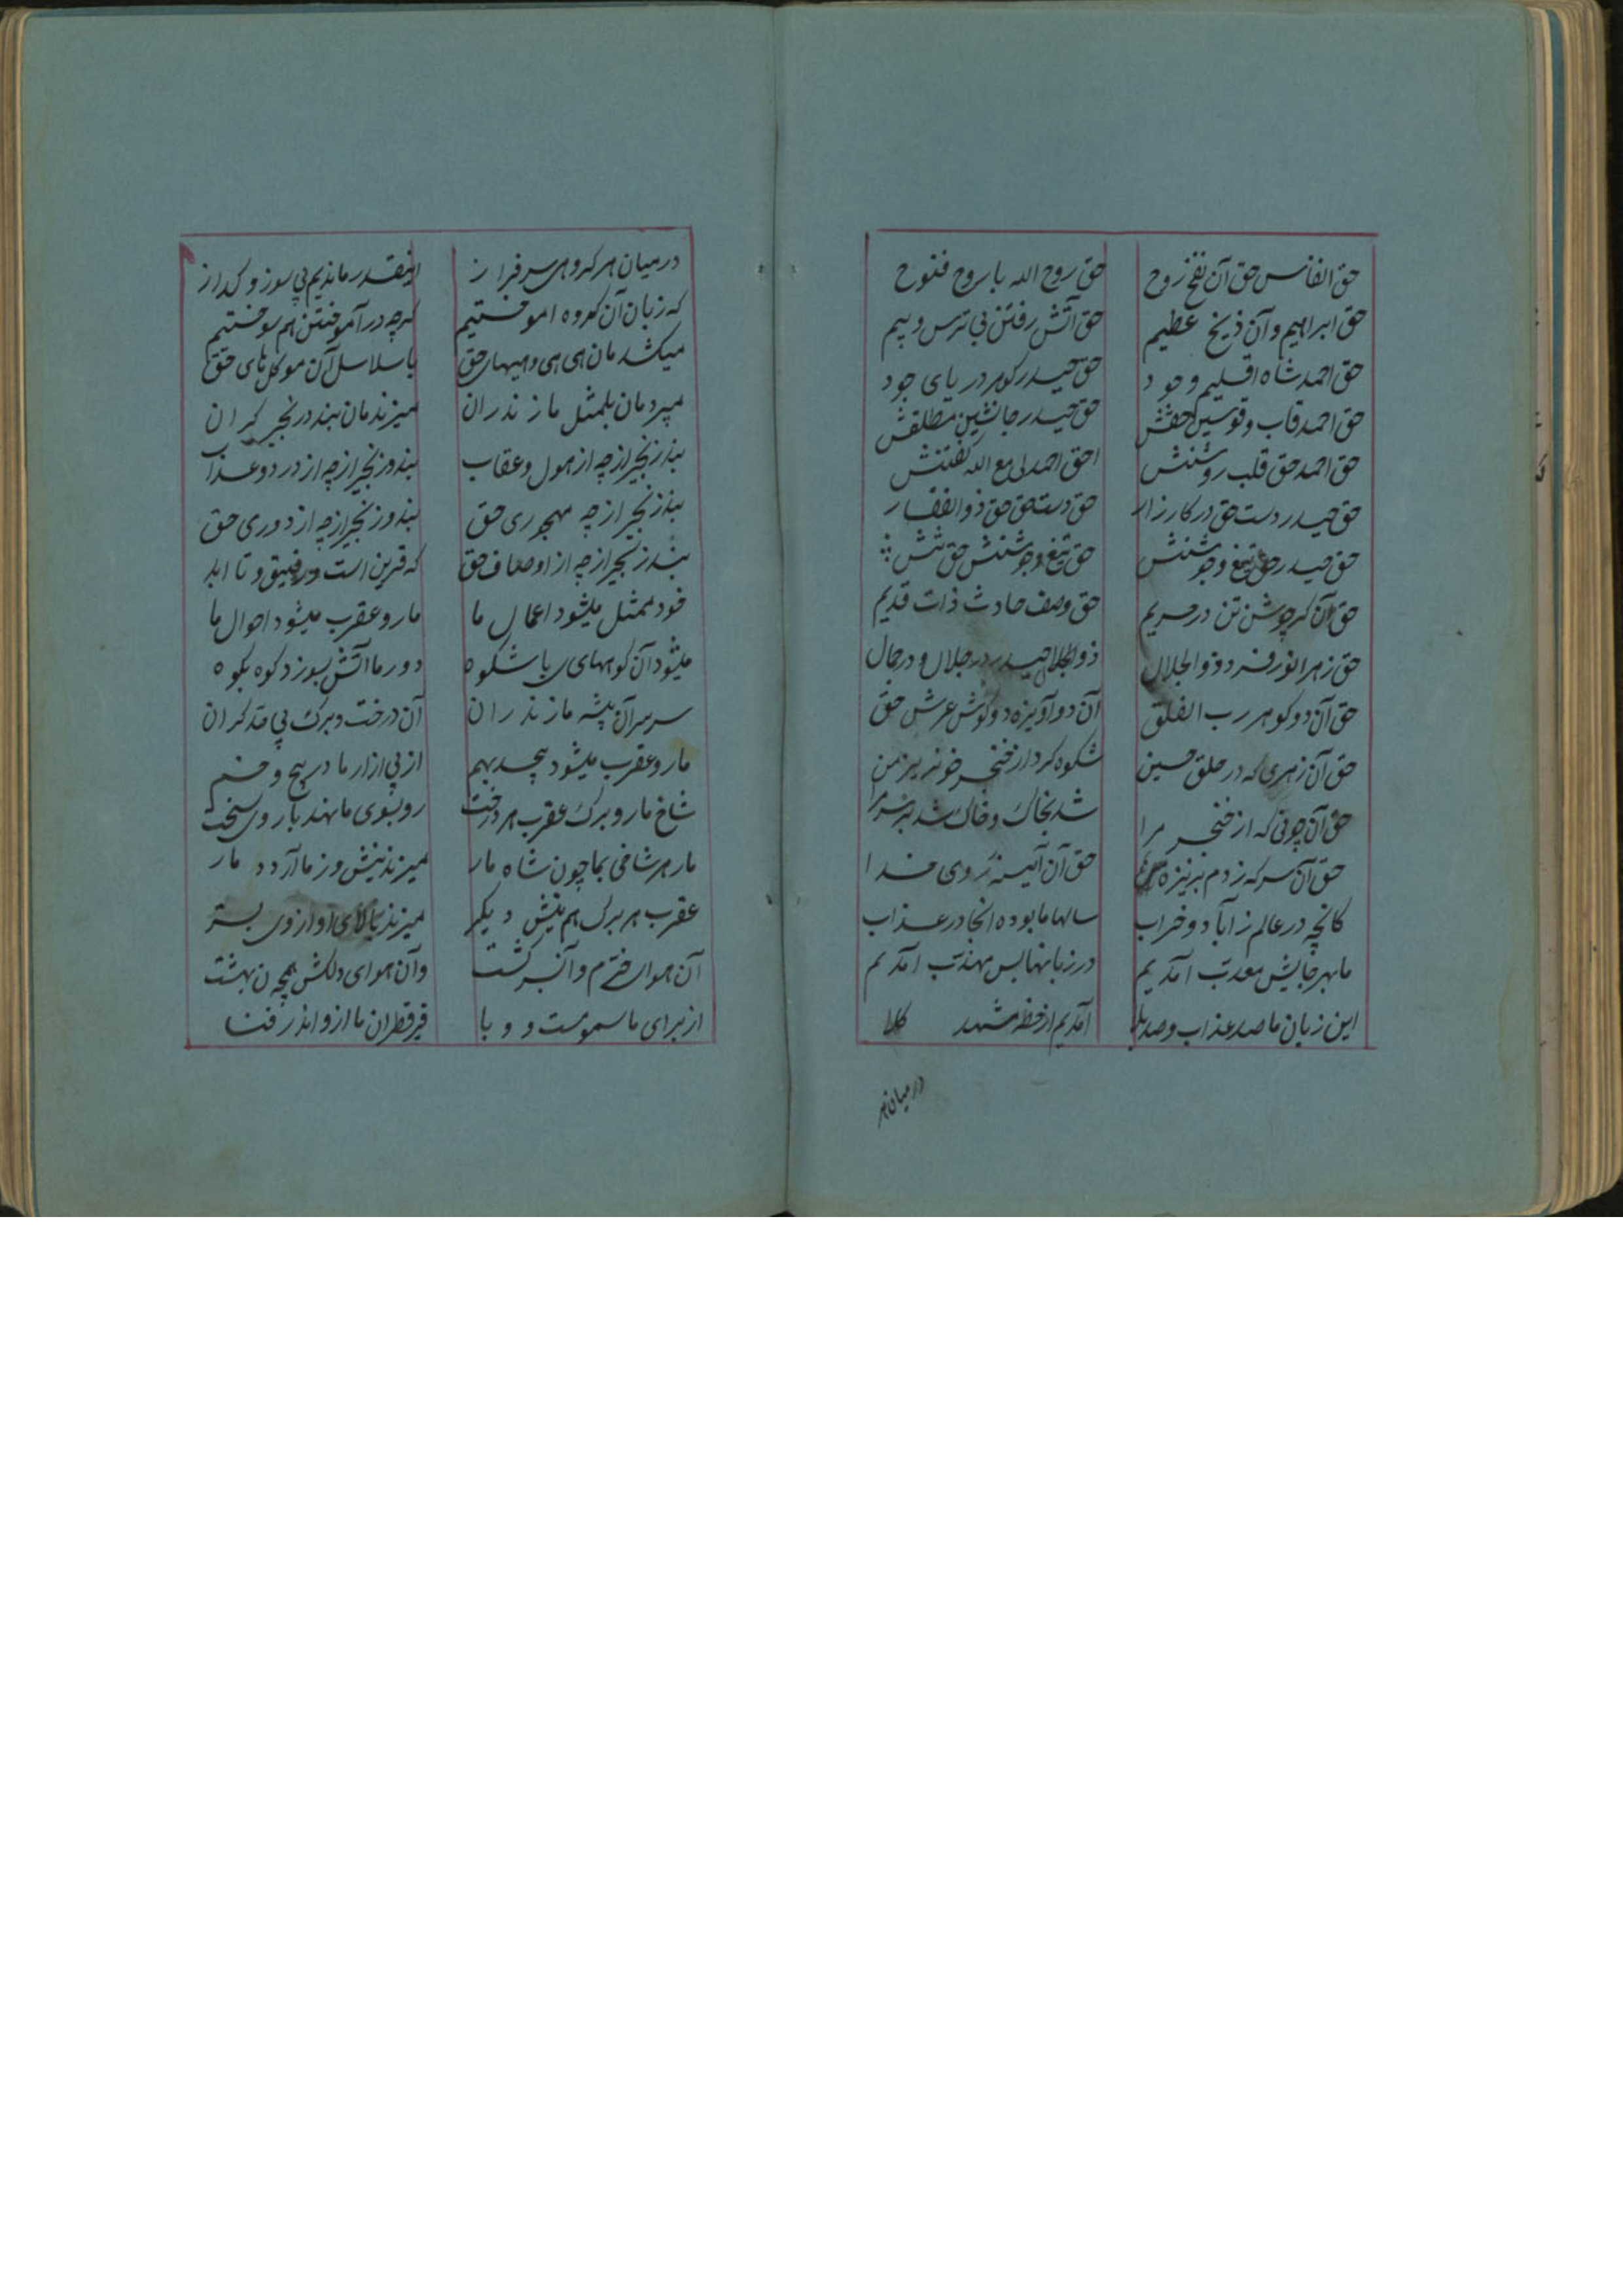 حق انفاس حق آن نفخ روح حق روح الله با روح فتوح
حق ابراهیم و آن ذبح عظیم حق آتش رفتن بی ترس و بیم
حق احمد شاه اقلیم وجود حق حیدر کوهر دریای جود
حق احمد قاب و قوسین حقش حق حیدر جانشین مطلقش
حق احمد حق قلب روشنش حق احمد لی مع الله کفتنش
حق حیدر دست حق در کارزار حق دست حق حق ذوالفقار
حق حیدر حق تیغ و جوشنش حق تیغ و جوشنش حق تنش
حق آن کر جوشن تن در حریم حق وصف حادث ذات قدیم
حق زهرا نور فرد ذوالجلال ذوالجلال حیدر در جلال و در جمال
حق آن دو کوهر رب الفلق آن دو آویزه دو کوش عرش حق
حق آن زهری که در حلق حسین شکوه کرد از خنجر خونریز من
حق آن چونی که از خنجر مرا شد بخاک و خاک شد بر سر مرا
حق آن سر که زدم بر نیزه حق آن آیینه روی خدا
کانچه در عالم ز آباد و خراب سالها ما بوده آنجا در عذاب
ما بهر جایش معذب آمدیم در زبانها بس مهذب آمدیم
این زبان ما صد عذاب و صد بلا آمدیم از خطه مشهد کلا
در میان هر
در میان هر کروهی سرفراز اینقدر ماندیم بی سوز و کداز
که زبان آن کروه اموختیم کرچه در آموختن هم سوختیم
میکشدمان هی هی و هیهای حق با سلاسل آن موکل‌های حق
میبردمان بلمثل مازندران میزندمان بند در نجیر کران
بند زنجیر از چه از هول و عقاب بند و زنجیر از چه از درد و عذاب
بند زنجیر از چه مهجوری حق بند و زنجیر از چه از دوری حق
بند زنجیر از چه از اوصاف حق که قرین است و رفیق و تا ابد
خود ممثل میشود اعمال ما مار و عقرب میشود احوال ما
میشود آن کوههای با شکوه دور ما آتش بسوزد کوه بکوه
سر بسر آن بیشه مازندران آن درخت و برک بی حد کران
مار و عقرب میشود پیچد بهم از پی ازار ما در پیچ و خم
شاخ مار و برک عقرب هر درخت رو بسوی ما نهند با روی سخت
مار هر شاخی بما چون شاه مار میزند نیش و ز ما آرد دمار
عقرب هر برک هم نیش دیکر میزند بالای او از وی بتر
آن هوای خرم و آن سر کشت وآن هوای دلکش همچون بهشت
از برای ما سمومست و وبا قیر قطران ما از و اندر فنا